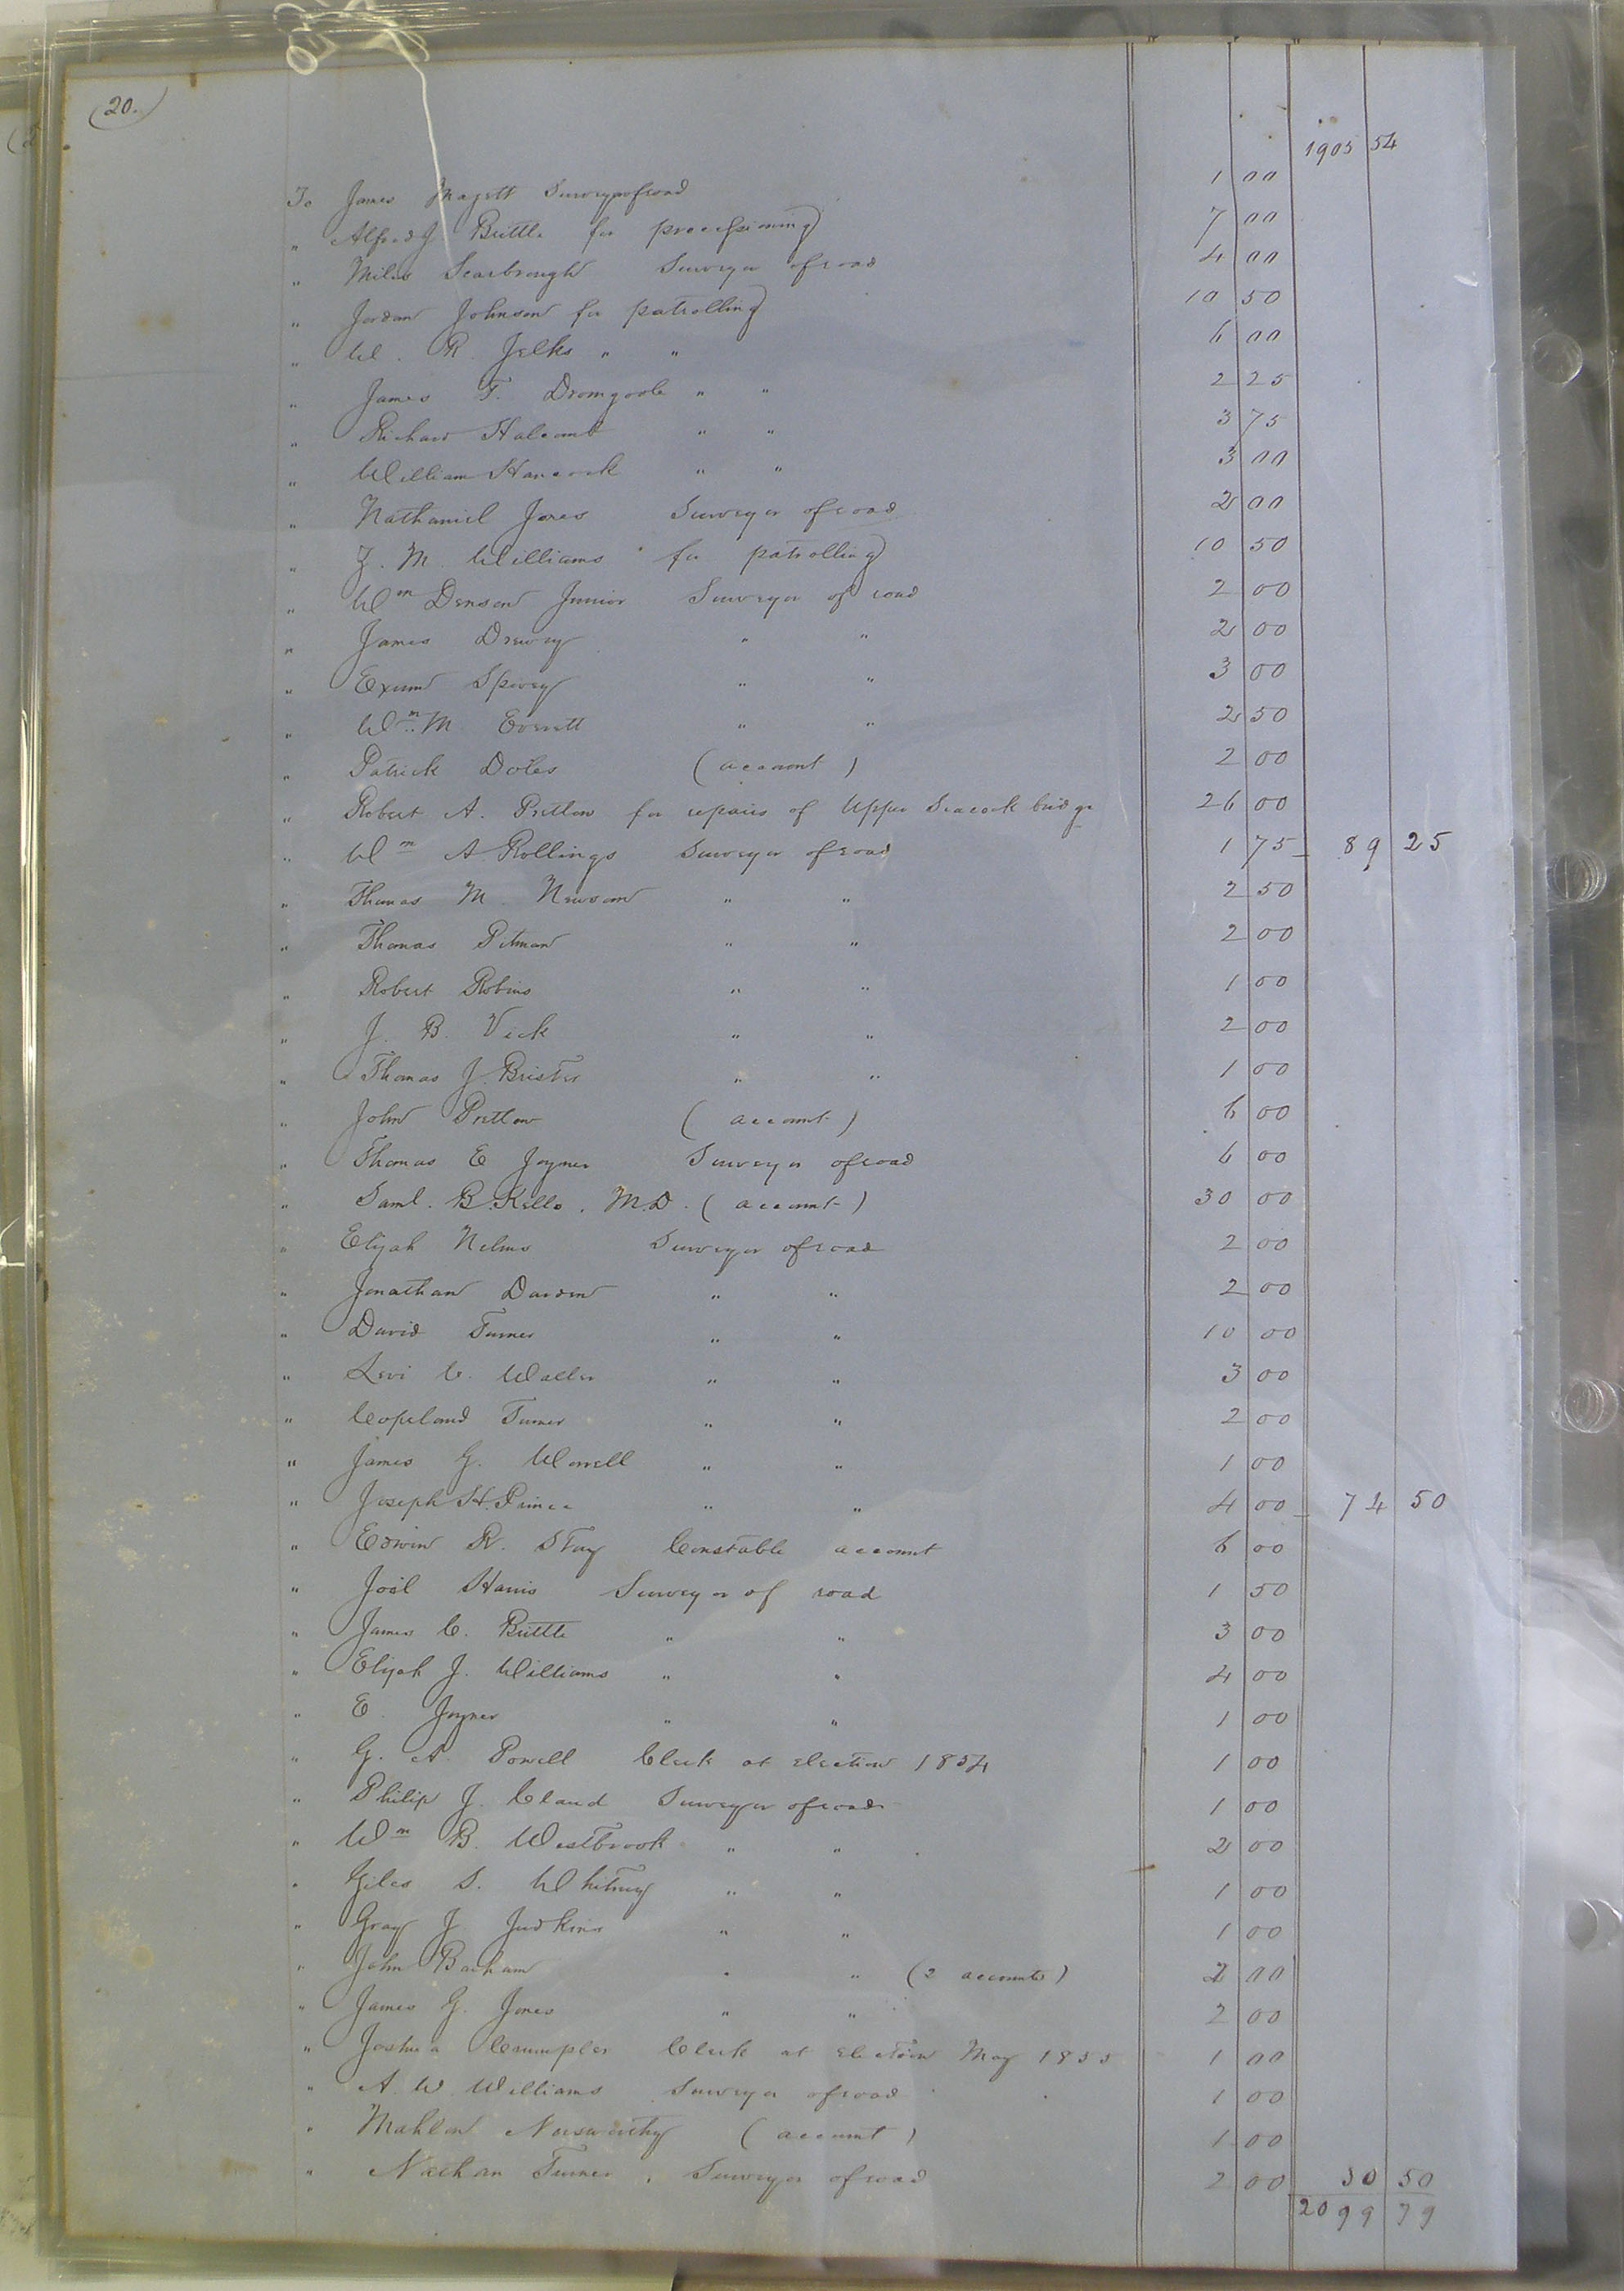 (20.)
1905 54
To James Majett Surveyor of road 1 00
" Alfred J Brittle for processioning 7 00
" Miles Scarbrough Surveyor of road 4 00
" Jordan Johnson for patrolling 10 50
" W. R. Jelks " " 6 00
" James F. Dromgoole " " 2 25
" Richard Halcomb " " 3 75
" William Hancock " " 3 00
" Nathaniel Jones Surveyor of road 2 00
" J. M. Williams for patrolling 10 50
" Wm Denson Junior Surveyor of road 2 00
" James Drewry " " 2 00
" Exum Spivey " " 3 00
" Wm. M. Everett " " 2 50
" Patrick Doles (account) 2 00
" Robert A. Pretlow for repairs of Upper Seacock bridge 26 00
" Wm A Rollings Surveyor of road 1 75 89 25
" Thomas M. Newsom " " 2 50
" Thomas Pitman " " 2 00
" Robert Robins " " 1 00
" J. B. Vick " " 2 00
" Thomas J. Brister " " 1 00
" John Pretlow (account) 6 00
" Thomas E Joyner Surveyor of road 6 00
" Saml. B. Kello. M.D. (account) 30 00
" Elijah Nelms Surveyor of road 2 00
" Jonathan Darden " " 2 00
" David Turner " " 10 00
" Levi C. Waller " " 3 00
" Copeland Turner " " 2 00
" James G. Worrell " " 1 00
" Joseph H. Prince " " 4 00 74 50
" Edwin R. Stay Constable account 6 00
" Joel Harris Surveyor of road 1 50
" James C. Brittle " " 3 00
" Elijah J. Williams " " 4 00
" E. Joyner " " 1 00
" G. A. Powell Clerk at election 1854 1 00
" Philip J. Claud Surveyor of road 1 00
" Wm B. Westbrook " " 2 00
" Giles S. Whitney " " 1 00
" Gray J. Judkins " " 1 00
" John Barham " " (2 accounts) 2 00
" James G. Jones " " 2 00
" Joshua Crumpler Clerk at Election May 1855 1 00
" A. W. Williams Surveyor of road 1 00
" Mahlon Norsworthy (account) 1 00
" Nathan Turner, Surveyor of road 2 00 30 50
2099 79